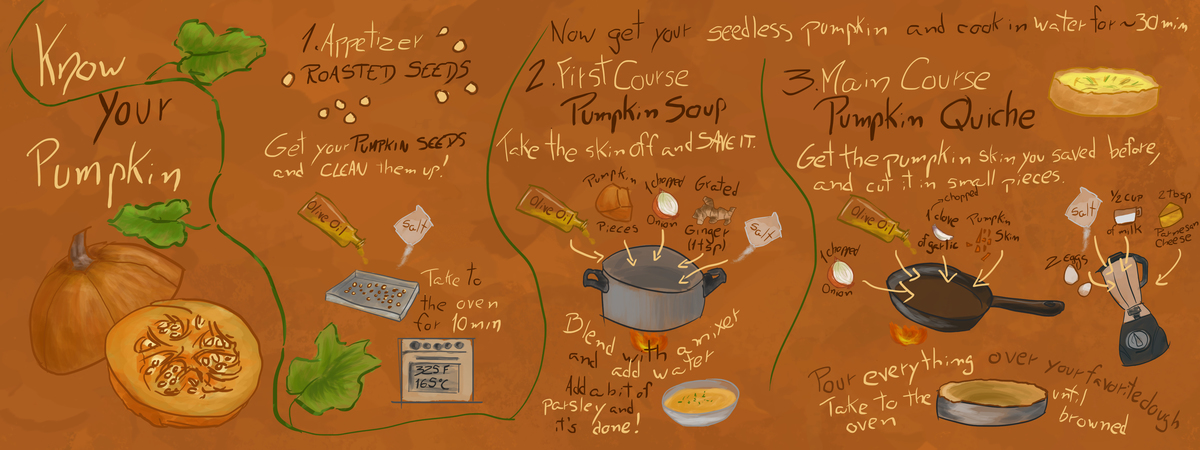 Know
your
Pumpkin
1. Appetizer
ROASTED SEEDS
Get your PUMPKIN SEEDS
and CLEAN them up!
Olive Oil
Salt
Take to
the oven
for 10 min
325 F
165°C
Now get your seedless pumpkin and cook in water for ~30 min
2. First Course
Pumpkin Soup
Take the skin off and SAVE IT.
Olive Oil
Pumpkin
Pieces
1 chopped
Onion
Grated
Ginger
(1 tsp)
Salt
Blend with a mixer
and add water
Add a bit of
parsley and
it's done!
3. Main Course
Pumpkin Quiche
Get the pumpkin skin you saved before,
and cut it in small pieces.
1 chopped
Onion
Olive Oil
chopped
1 clove
of garlic
Pumpkin
Skin
2 eggs
Salt
1/2 cup
of milk
2 Tbsp
Parmesan
Cheese
Pour everything over your favorite dough
Take to the
oven
until
browned